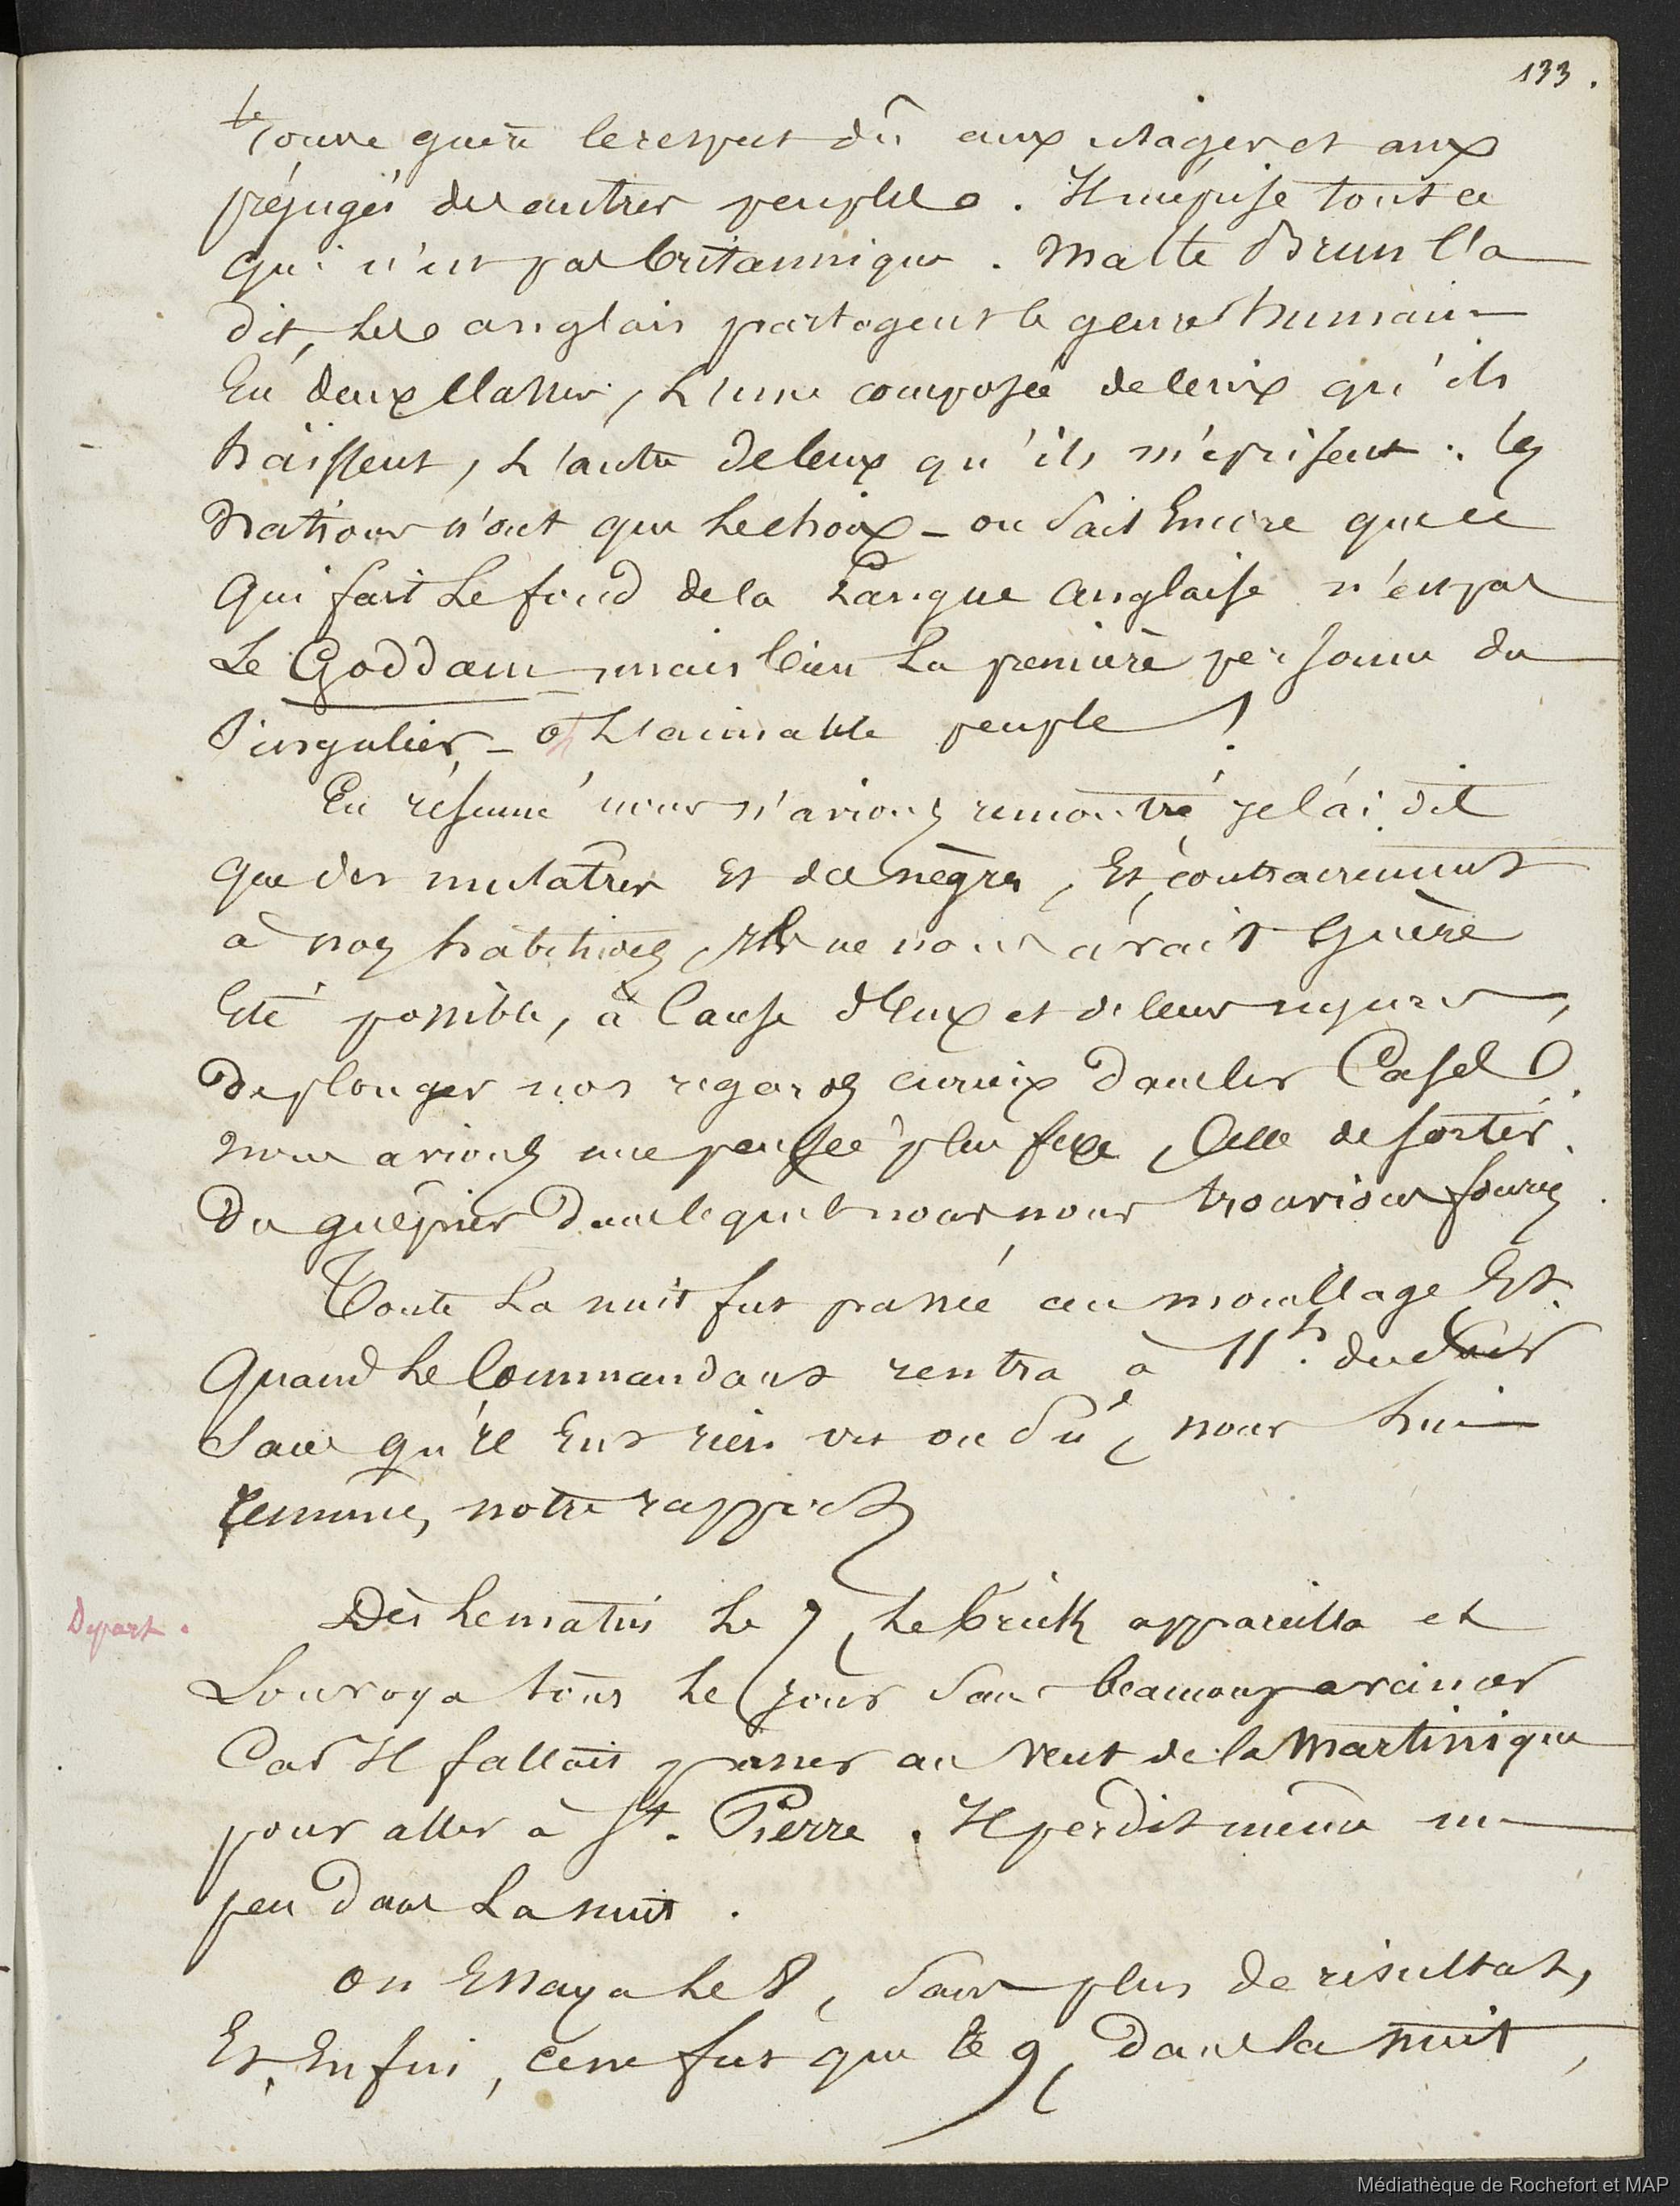 133.
trouve guère le respect dû aux usages et aux
préjugés des autres peuples. Il méprise tout ce
qui n'est pas britannique. Malte Brun l'a
dit, les anglais partagent le genre humain
En deux classes, l'une composée de ceux qu'ils
haïssent, l'autre de ceux qu'ils méprisent. les
Nations n'ont que le choix - on sait Encore que ce
Qui fait le fond de la Langue anglaise n'est pas
Le Goddam mais bien la première personne du
Singulier - oh l'aimable peuple !
En résumé nous n'avions rencontré je l'ai dit
que des mulâtres Et des nègres, Et, contrairement
à nos habitudes, il ne nous avait Guère
Eté possible, à Cause d'Eux et de leurs
De plonger nos regards curieux dans les Cases.
nous avions une pensée plus fixe, Celle de sortir
Du guêpier Dans lequel nous nous trouvions
Toute la nuit fut passée au mouillage Et
Quand le Commandant rentra à 11h. du soir
Sans qu'il Eut rien vu ou Su, nous lui
notre rapport
Départ.
Dès le matin le 7, le brick appareilla et
Louvoya tout le jour Sans beaucoup avancer
Car Il fallait passer au Vent de la Martinique
pour aller à St. Pierre. Il perdit même un
peu Dans la nuit.
On Essaya le 8, Sans plus de résultat,
Et, Enfin, ce ne fut que le 9, Dans la nuit,
Médiathèque de Rochefort et MAP